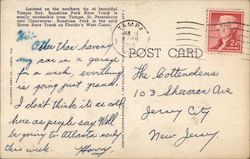 Located on the northern tip of beautiful
Tampa Bay, Sunshine Park Race Track is
easily accessible from Tampa, St. Petersburg
and Clearwater. Sunshine Park is the only
Horse Race Track on Florida's West Coast.
TAMPA
POST CARD
Hi-
Other than having
my car in a garage
for a week, everything
is going just great.
I don't think it's as cold
here as people say. Will
be going to Atlanta early
this week.
Harry
The Cottendens
103 Sherman Ave
Jersey City
New Jersey
2¢